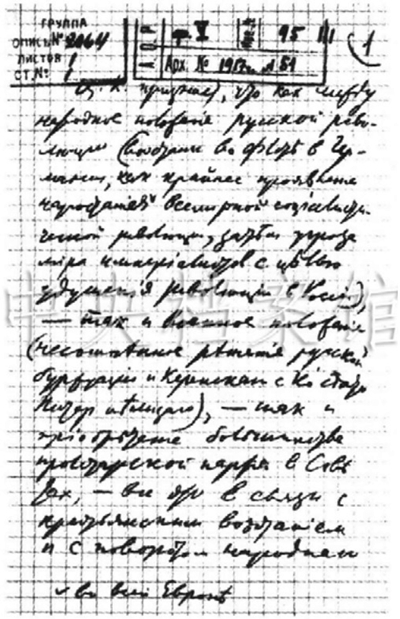 ГРУППА
ОПИСЬ № 2064
ЛИСТОВ
СТ. № 1
ф. V 95 III
Арх. № 1917 г. л. 51
1
Ц. К. признает, что как между
народное положение русской рево-
люции (восстание во флоте в Гер-
мании, как крайнее проявление
нарастания ˅ всемирной социалисти-
ческой революции, затем угроза
мира империалистов с целью
удушения революции в России),
— так и военное положение
(несомненное решение русской
буржуазии и Керенского с Ко сдать
Питер немцам), — так и
приобретение большинства
пролетарской партией в Сове
тах, — все это в связи с
крестьянским восстанием
и с поворотом народного
˅ во всей Европе
中央档案馆